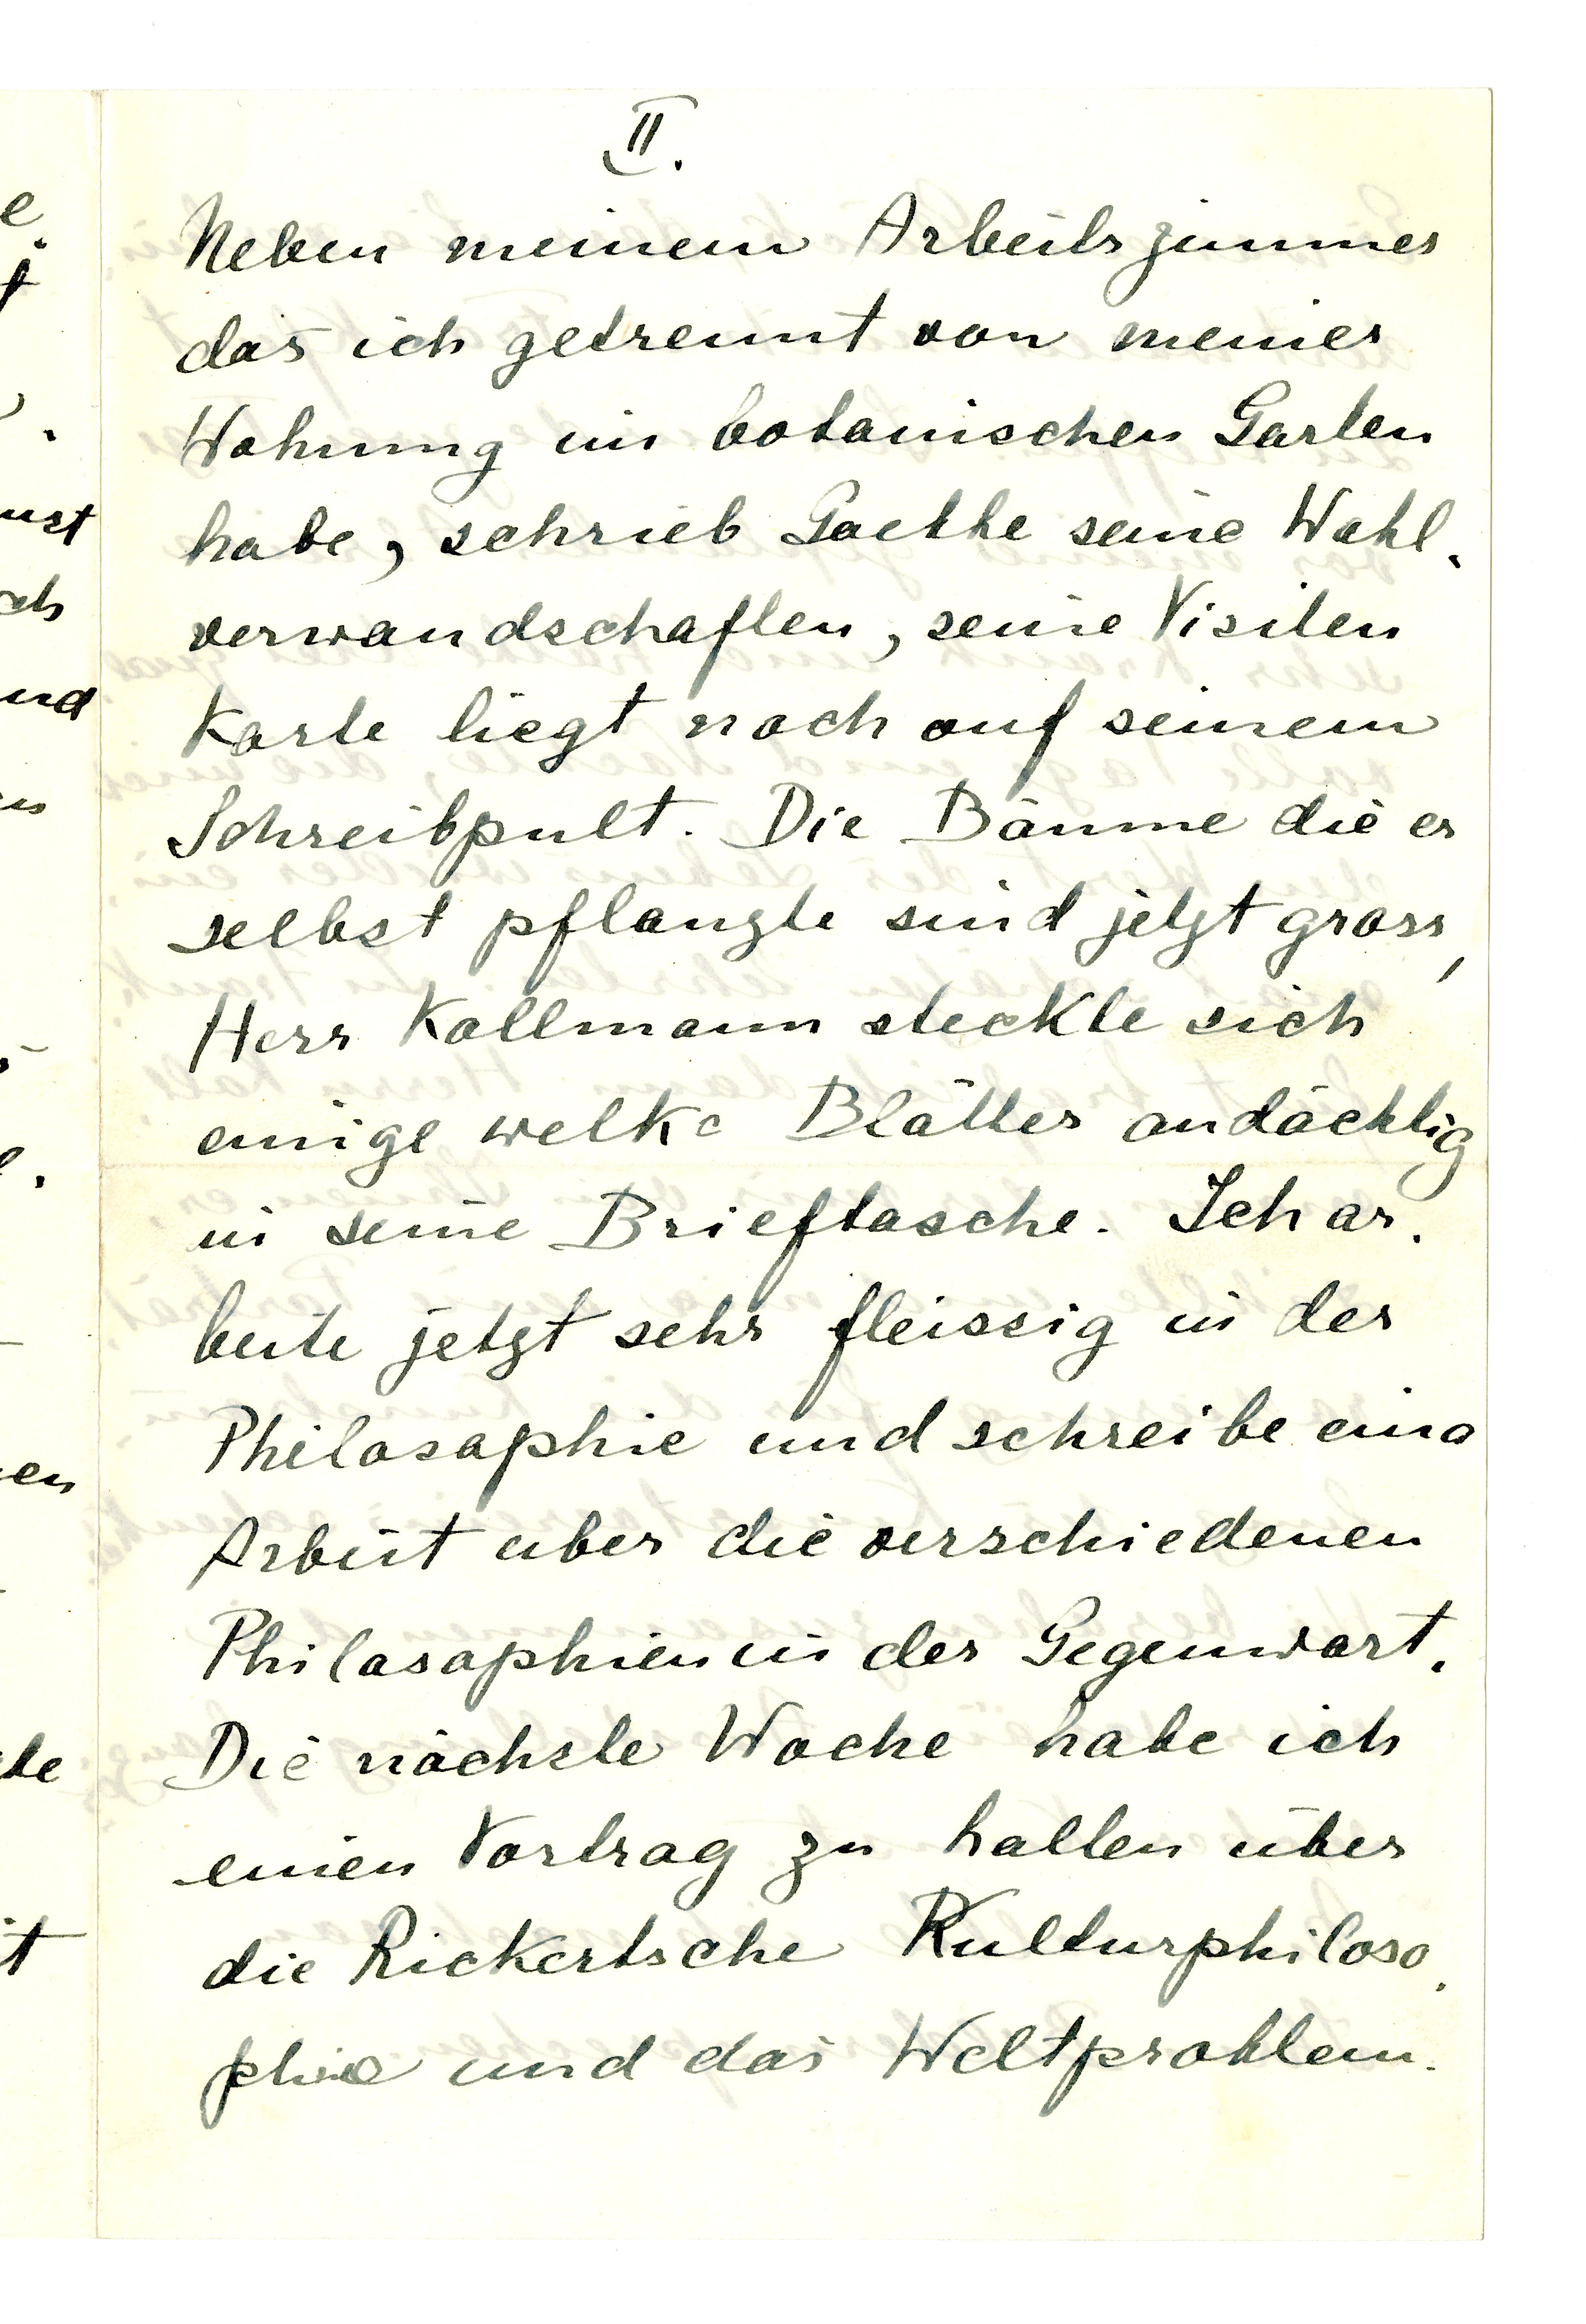 II.
Neben meinem Arbeitszimmer
das ich getrennt von meiner
Wohnung im botanischen Garten
habe, schrieb Goethe seine Wahl-
verwandschaften, seine Visiten
Karte liegt noch auf seinem
Schreibpult. Die Bäume die er
selbst pflanzte sind jetzt gross,
Herr Kollmann steckte sich
einige welke Blätter andächtig
in seine Brieftasche. Ich ar-
beite jetzt sehr fleissig in der
Philosophie und schreibe eine
Arbeit uber die verschiedenen
Philosophien in der Gegenwart.
Die nächste Woche habe ich
einen Vortrag zu halten über
die Rickertsche Kulturphiloso-
phie und das Weltproblem.